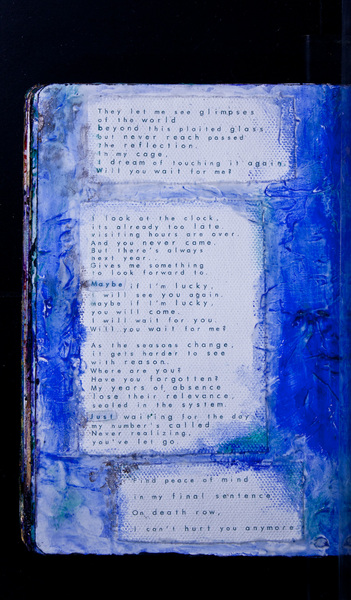 They let me see glimpses
of the world
beyond this plaited glass,
but never reach passed
the reflection.
In my cage,
I dream of touching it again.
Will you wait for me?
I look at the clock,
its already too late.
visiting hours are over.
And you never came.
But there's always
next year..
Gives me something
to look forward to.
Maybe if I'm lucky,
I will see you again.
maybe if I'm lucky,
you will come.
I will wait for you.
Will you wait for me?
As the seasons change,
it gets harder to see
with reason.
Where are you?
Have you forgotten?
My years of absence
lose their relevance,
sealed in the system.
Just waiting for the day
my number's called
Never realizing,
you've let go.
find peace of mind
in my final sentence
On death row,
I can't hurt you anymore